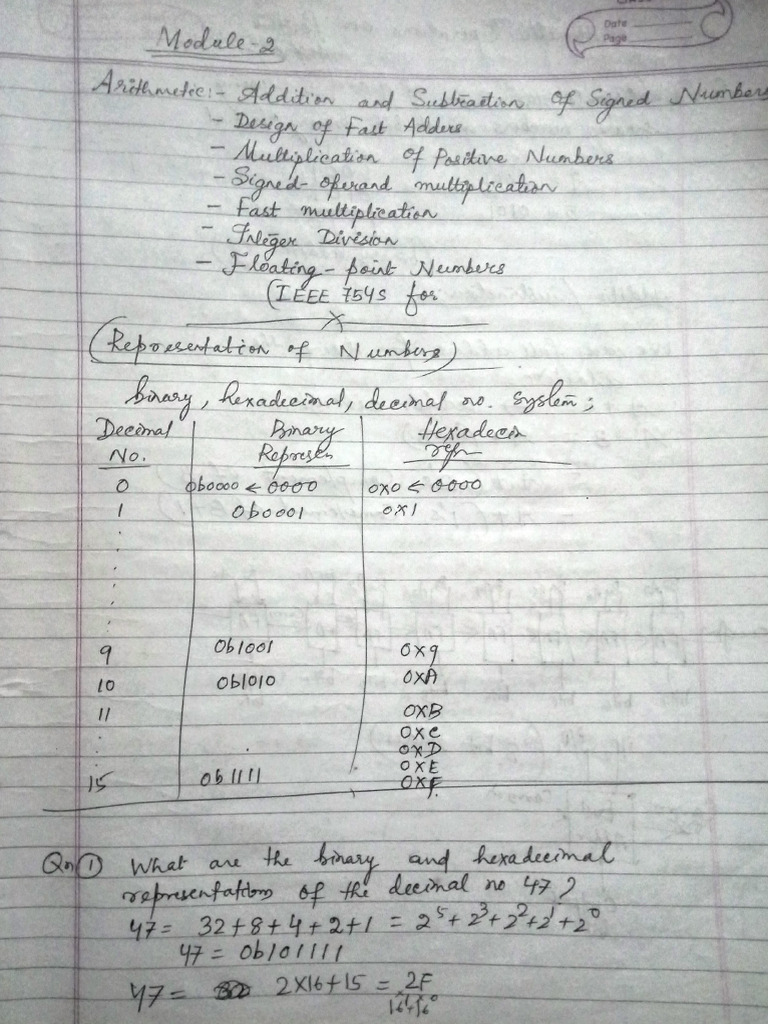 Date
Page
Module-2
Arithmetic:- Addition and Subtraction of Signed Numbers
- Design of Fast Adders
- Multiplication of Positive Numbers
- Signed-operand multiplication
- Fast multiplication
- Integer Division
- Floating-point Numbers
(IEEE 754S for
(Representation of Numbers)
binary, hexadecimal, decimal no. system;
Decimal No. Binary Represen Hexadecim repn
0 0b0000 ← 0000 0x0 ← 0000
1 0b0001 0x1
9 0b1001 0x9
10 0b1010 0xA
11 0xB
0xC
0xD
0xE
15 0b1111 0xF
Qn ① What are the binary and hexadecimal
representations of the decimal no 47?
47 = 32+8+4+2+1 = 2⁵+2³+2²+2¹+2⁰
47 = 0b101111
47 = 2X16+15 = 2F
16¹+16⁰